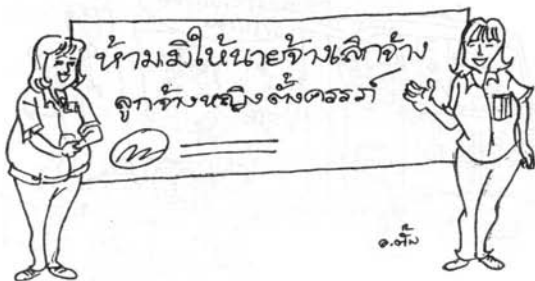 ห้ามมิให้นายจ้างเลิกจ้าง
ลูกจ้างหญิงตั้งครรภ์